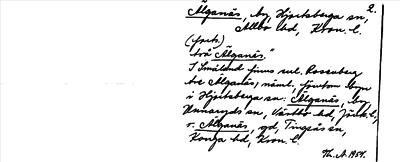 Älganäs, by, Hjortsberga sn, 2.
Allbo hd, Kron. l.
(forts.)
två Älganäs."
I Småland finns enl. Rosenberg
tre Älganäs, näml. förutom byn
i Hjortsberga sn: Älganäs, by,
Unnaryds sn, Västbo hd, Jönk. l,
o. Älganäs, gd, Tingsås sn,
Konga hd, Kron. l.
Th. A. 1954.